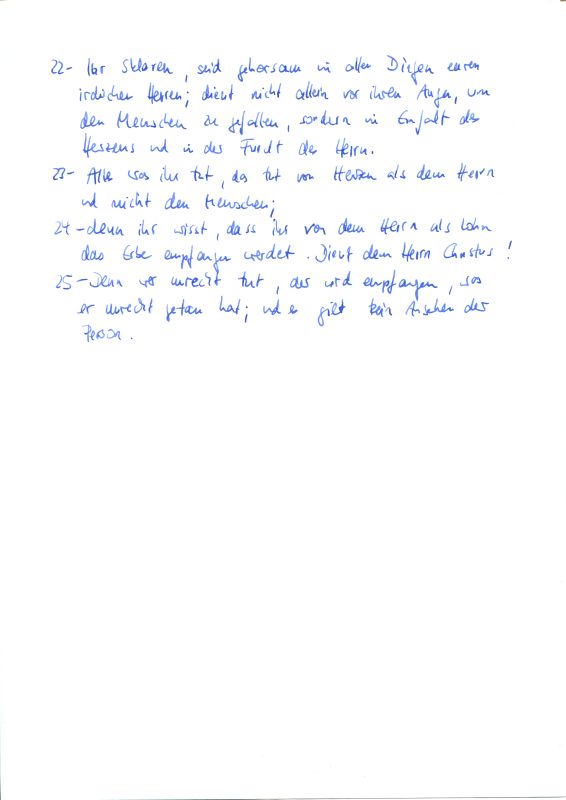 22- Ihr Sklaven, seid gehorsam in allen Dingen euren
irdischen Herren; dient nicht allein vor ihren Augen, um
den Menschen zu gefallen, sondern in Einfalt des
Herzens und in der Furcht des Herrn.
23- Alles was ihr tut, das tut von Herzen als dem Herrn
und nicht den Menschen;
24- denn ihr wisst, dass ihr von dem Herrn als Lohn
das Erbe empfangen werdet. Dient dem Herrn Christus!
25- Denn wer unrecht tut, der wird empfangen, was
er unrecht getan hat; und es gilt kein Ansehen der
Person.